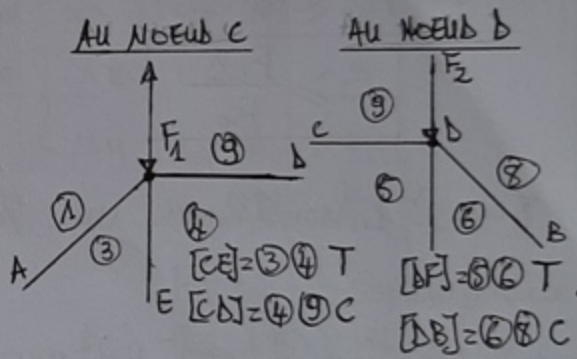 AU NOEUD C
F1
⑨
D
①
③
④
A
E
[CE]=③④ T
[CD]=④⑨ C
AU NOEUD D
F2
⑨
C
D
⑤
⑧
⑥
B
[DF]=⑤⑥ T
[DB]=⑥⑧ C